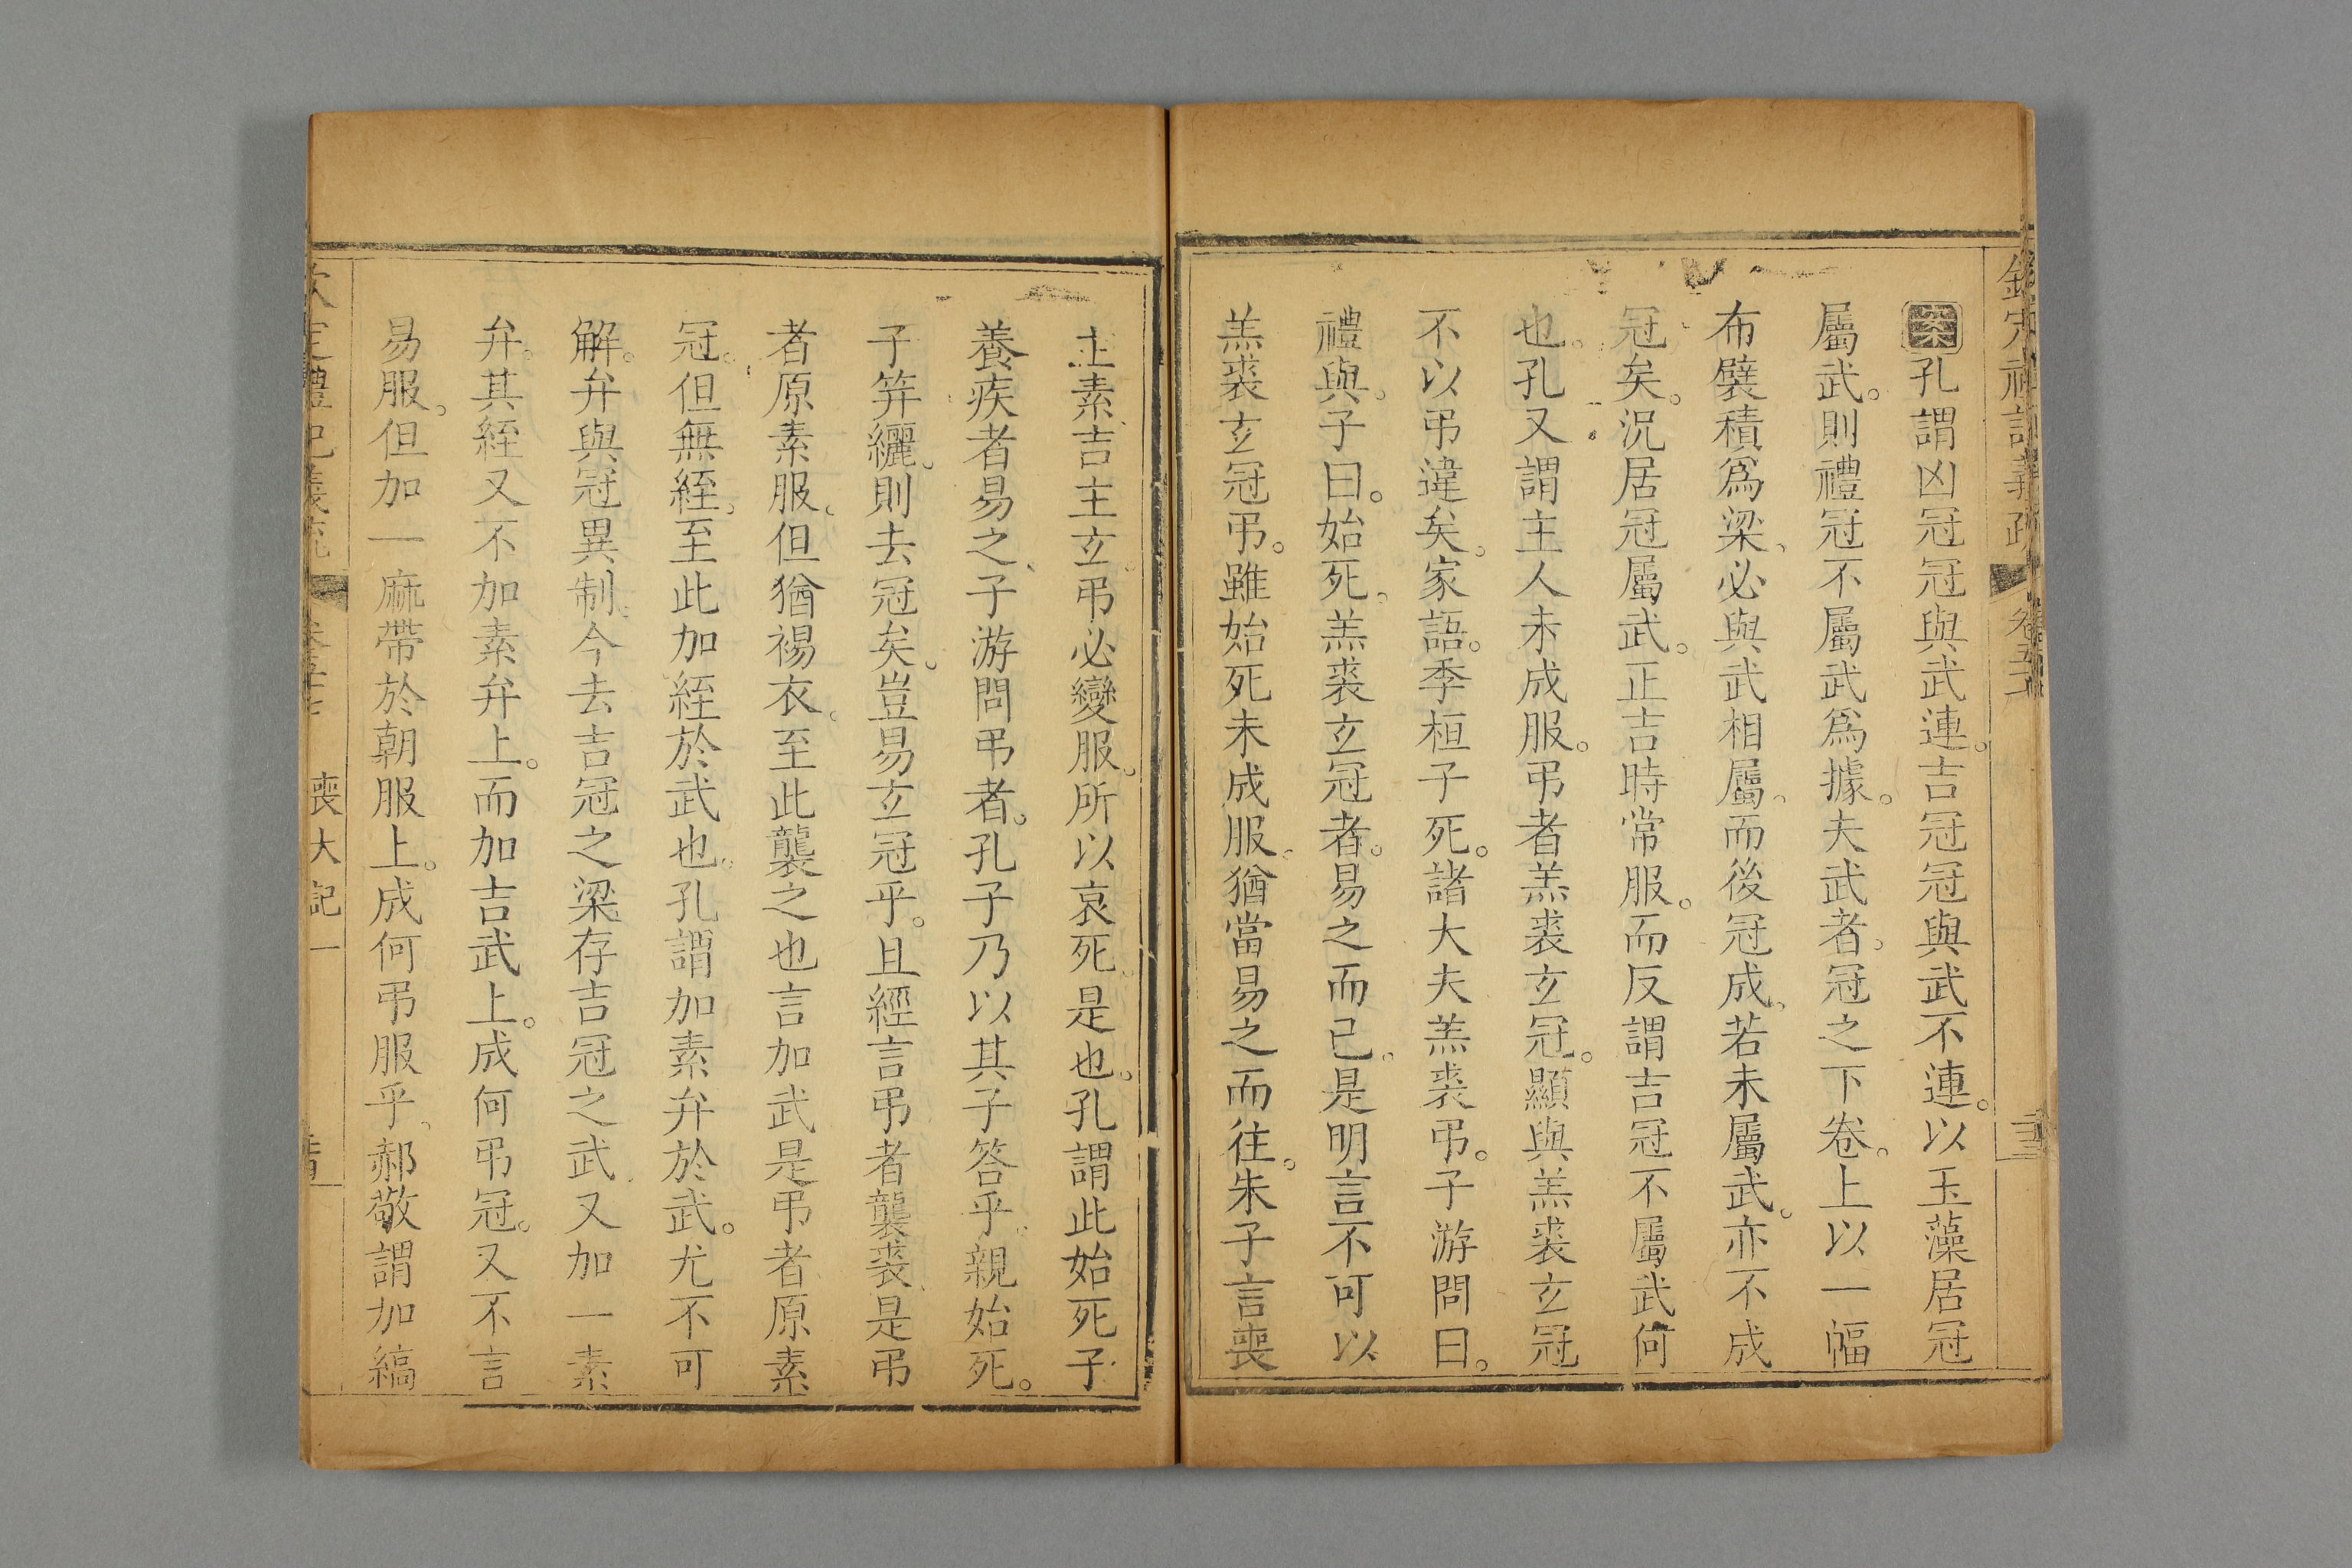 欽定禮記義疏 卷五十
案孔謂凶冠冠與武連。吉冠冠與武不連。以玉藻居冠
屬武。則禮冠不屬武爲據。夫武者。冠之下卷。上以一幅
布襞積爲梁、必與武相屬、而後冠成、若未屬武。亦不成
冠矣。況居冠屬武。正吉時常服。而反謂吉冠不屬武何
也。孔又謂主人未成服。弔者羔裘玄冠。顯與羔裘玄冠
不以弔違矣。家語。季桓子死。諸大夫羔裘弔。子游問曰。
禮與。子曰。始死。羔裘玄冠者。易之而已。是明言不可以
羔裘玄冠弔。雖始死未成服、猶當易之而往。朱子言喪
主素吉主玄弔必變服。所以哀死。是也。孔謂此始死子
養疾者易之、子游問弔者。孔子乃以其子答乎。親始死。
子筓纚。則去冠矣。豈易玄冠乎。且經言弔者襲裘、是弔
者原素服。但猶裼衣。至此襲之也言加武是弔者原素
冠。但無絰。至此加絰於武也。孔謂加素弁於武。尤不可
解。弁與冠異制。今去吉冠之梁存吉冠之武、又加一素
弁。其絰又不加素弁上。而加吉武上。成何弔冠。又不言
易服。但加一麻帶於朝服上。成何弔服乎、郝敬謂加縞
欽定禮記義疏 卷五十七 喪大記一